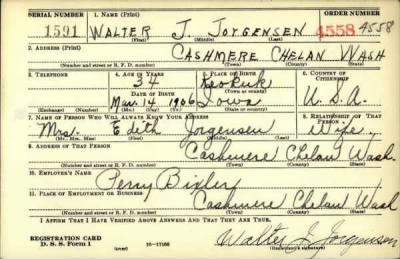 SERIAL NUMBER 1. NAME (Print) ORDER NUMBER
1591 WALTER J. JORGENSEN 4558 4558
(First) (Middle) (Last)
2. ADDRESS (Print)
CASHMERE CHELAN WASH
(Number and street or R. F. D. number) (Town) (County) (State)
3. TELEPHONE 4. AGE IN YEARS 5. PLACE OF BIRTH 6. COUNTRY OF CITIZENSHIP
34 Keokuk
DATE OF BIRTH (Town or county)
Mar. 14 1906 Iowa U.S.A.
(Exchange) (Number) (Mo.) (Day) (Yr.) (State or country)
7. NAME OF PERSON WHO WILL ALWAYS KNOW YOUR ADDRESS 8. RELATIONSHIP OF THAT PERSON
Mrs. Edith Jorgensen Wife
(Mr., Mrs., Miss) (First) (Middle) (Last)
9. ADDRESS OF THAT PERSON
Cashmere Chelan Wash.
(Number and street or R. F. D. number) (Town) (County) (State)
10. EMPLOYER'S NAME
Perry Bixler
11. PLACE OF EMPLOYMENT OR BUSINESS
Cashmere Chelan Wash
(Number and street or R. F. D. number) (Town) (County) (State)
I AFFIRM THAT I HAVE VERIFIED ABOVE ANSWERS AND THAT THEY ARE TRUE.
REGISTRATION CARD
D. S. S. Form 1 (over) 16-17105 Walter J. Jorgensen
(Registrant's signature)